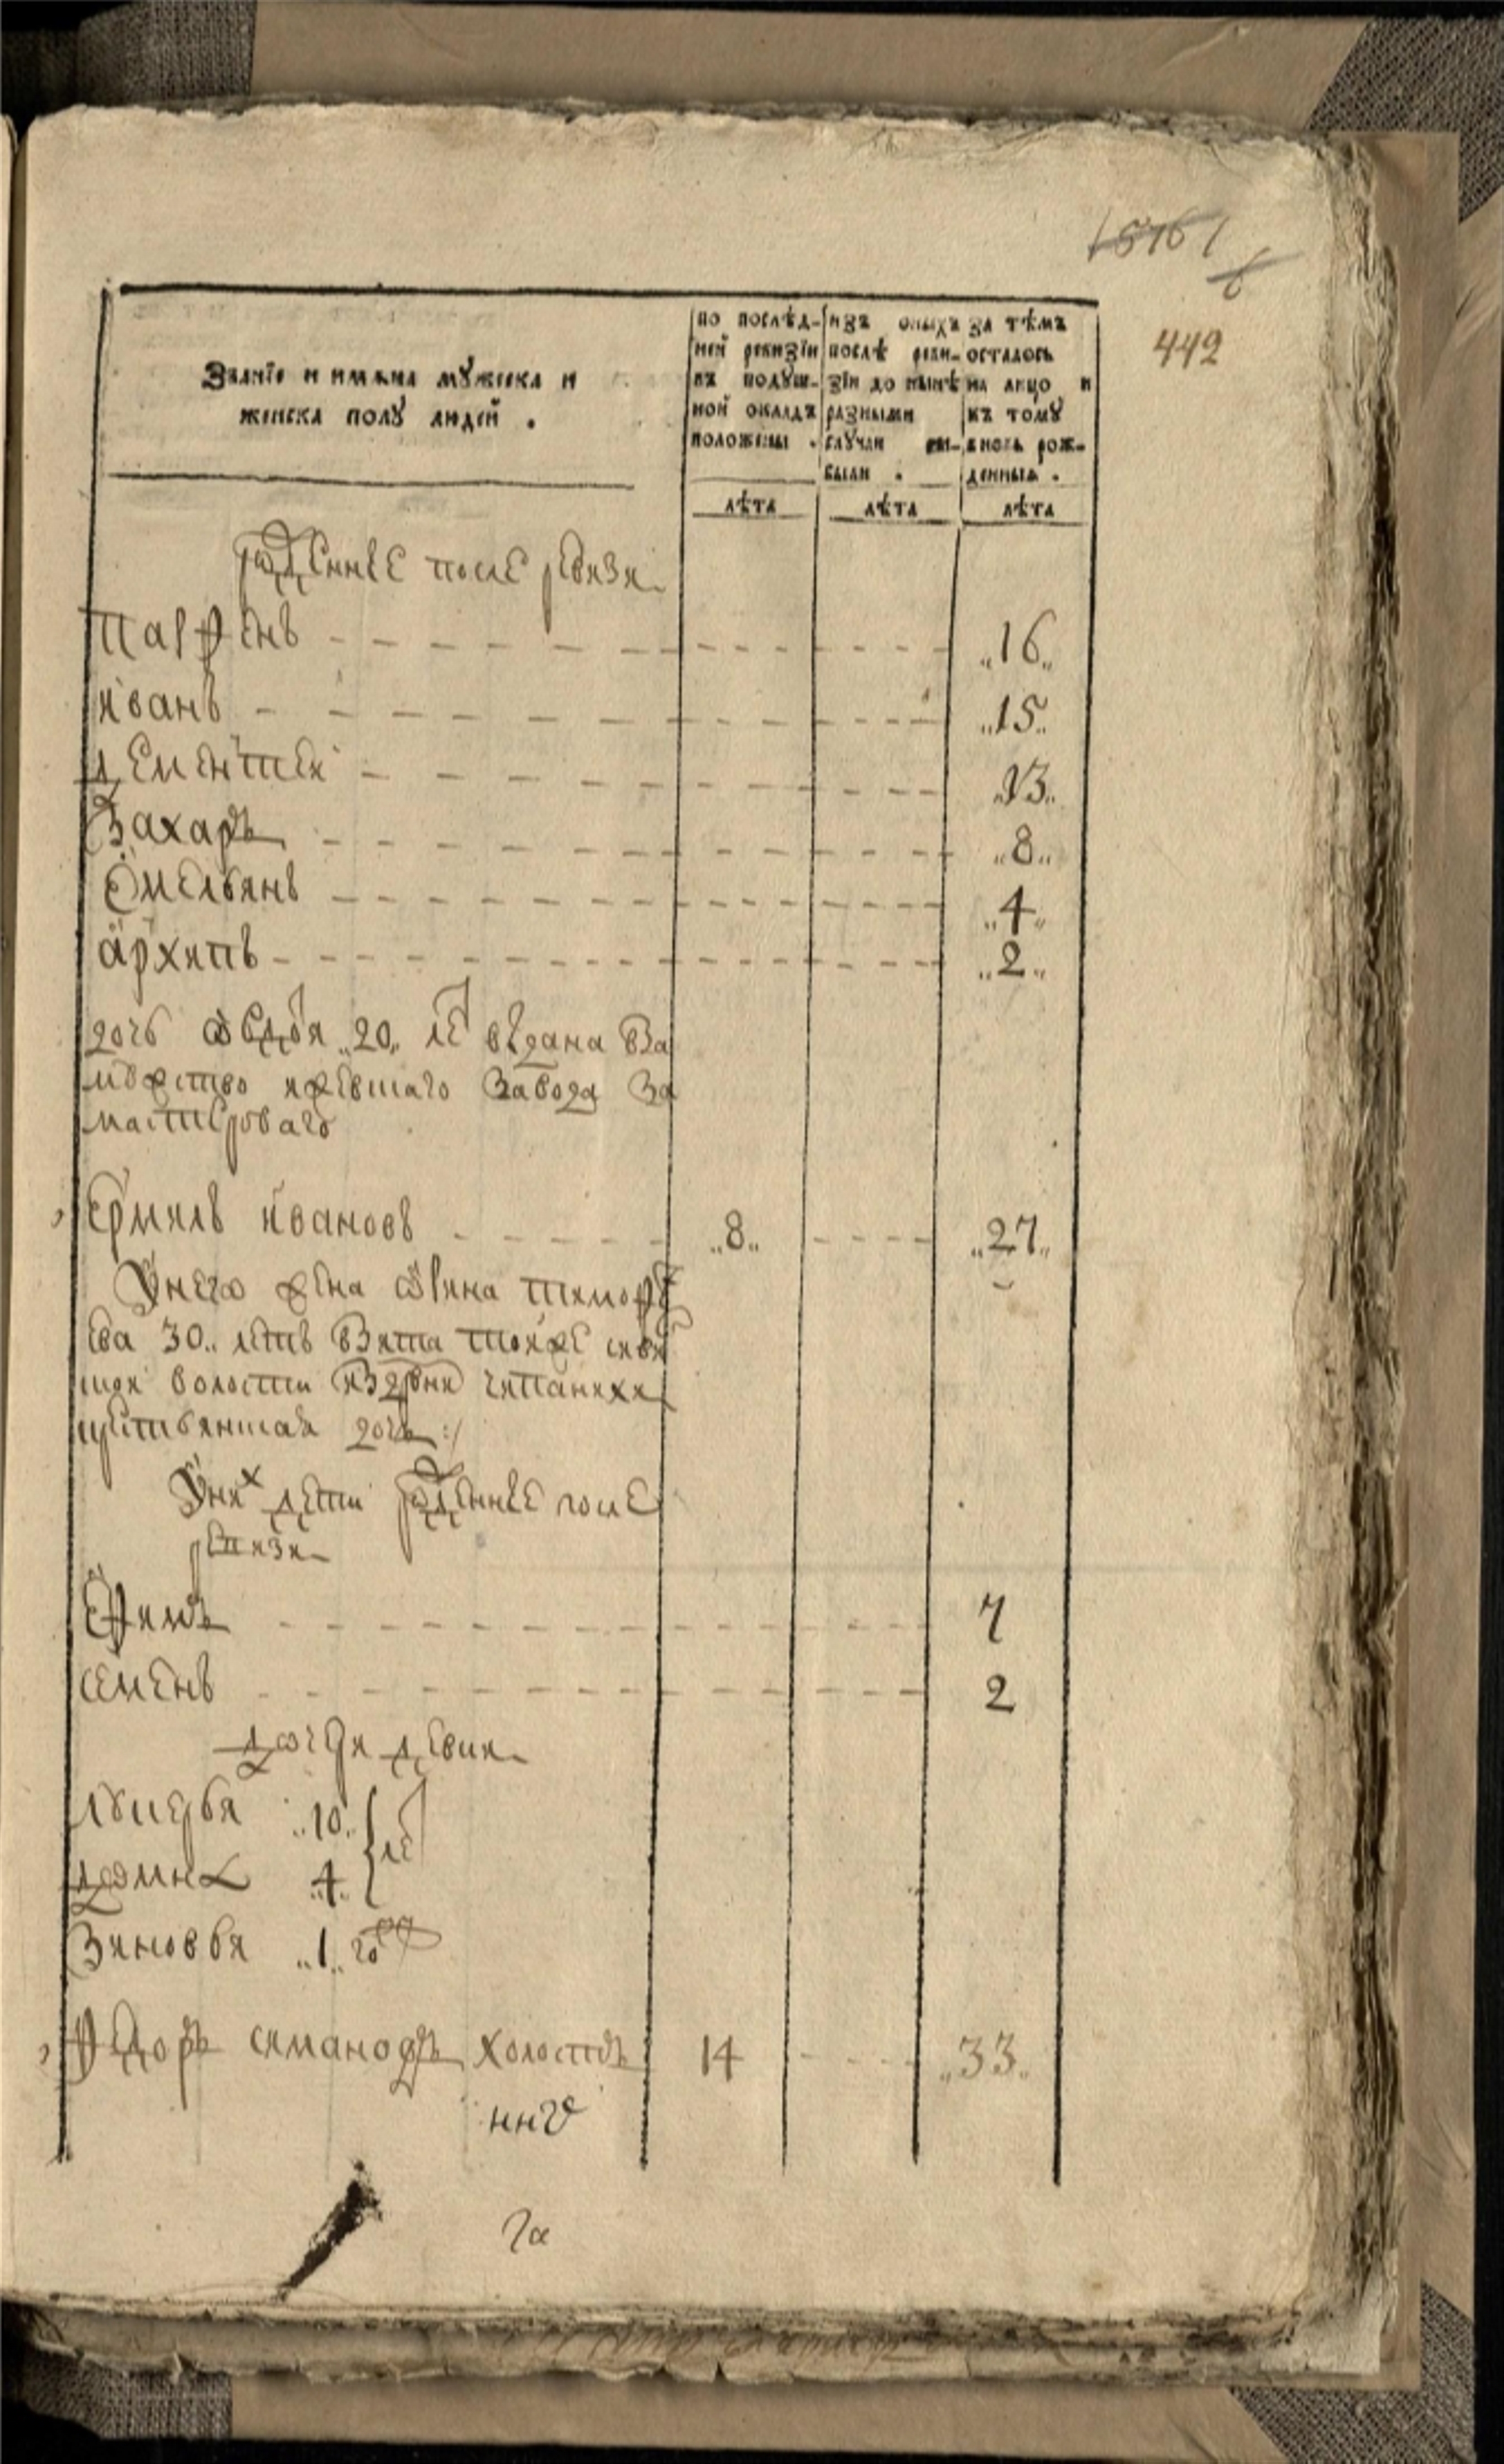 442
Званїе и имѧна мꙋжеска и
женска полꙋ людей .
по послѣд-
ней ревизїи
въ подꙋш-
ной окладъ
положены .
изъ оныхъ
послѣ реви-
зїи до нынѣ
разными
случаи вы-
были .
за тѣмъ
осталось
на лицо и
къ томꙋ
вновь рож-
денныѧ .
лѣта лѣта лѣта
рожденные после ревизи
парфенъ 16
иванъ 15
дементеи 13
Захаръ 8
Емельянъ 4
архипъ 2
дочь авдотья 20 ле выдана в за
мужство ижевшаго завода за
мастероваго
Ермилъ ивановъ 8 27
У него жена тимофе
ева 30 летъ взята тоиже
волости из дрвни
дочь :/
У них дети рожденные после
ревизи
Ефимъ 7
семенъ 2
дочери девки
лукерья 10 ле
домна 4
Зиновья 1 го
Федоръ симановъ холостъ 14 33